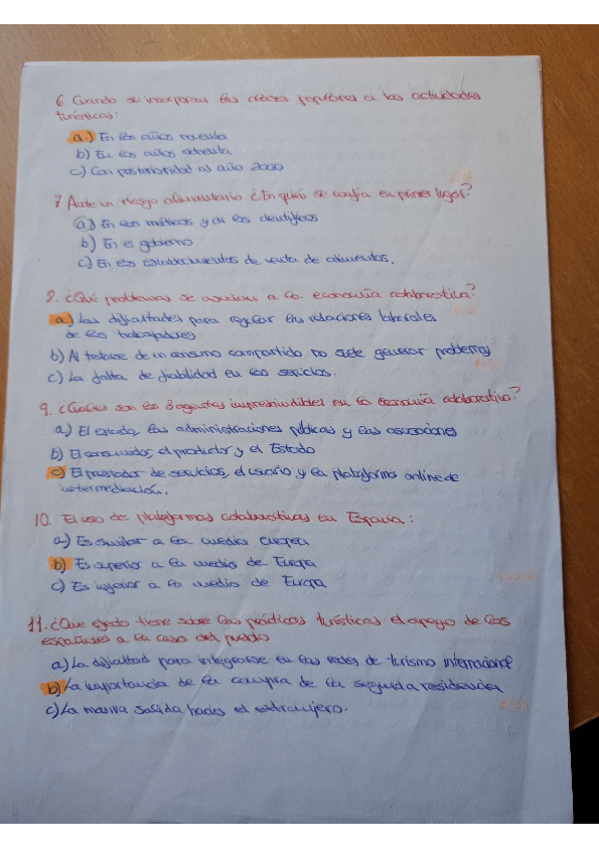 6. Cuando se incorporan las clases populares a las actividades
turísticas:
a.) En los años noventa
b) En los años ochenta
c) Con posterioridad al año 2000
7. Ante un riesgo alimentario ¿En quién se confía en primer lugar?
a) En los médicos y en los científicos
b) En el gobierno
c) En los establecimientos de venta de alimentos.
8. ¿Qué problemas se asocian a la economía colaborativa?
a) Las dificultades para regular las relaciones laborales
de los trabajadores
b) Al tratarse de un consumo compartido no suele generar problemas
c) La falta de fiabilidad en los servicios.
9. ¿Cuáles son los 3 agentes imprescindibles en la economía colaborativa?
a) El estado, las administraciones públicas y las asociaciones
b) El consumidor, el productor y el Estado
c) El prestador de servicios, el usuario, y la plataforma online de
intermediación.
10. El uso de plataformas colaborativas en España:
a) Es similar a la media europea
b) Es superior a la media de Europa
c) Es inferior a la media de Europa
11. ¿Que efecto tiene sobre las prácticas turísticas el apego de los
españoles a la casa del pueblo
a) La dificultad para integrarse en las redes de turismo internacional
b) La importancia de la compra de la segunda residencia
c) La masiva salida hacia el extranjero.